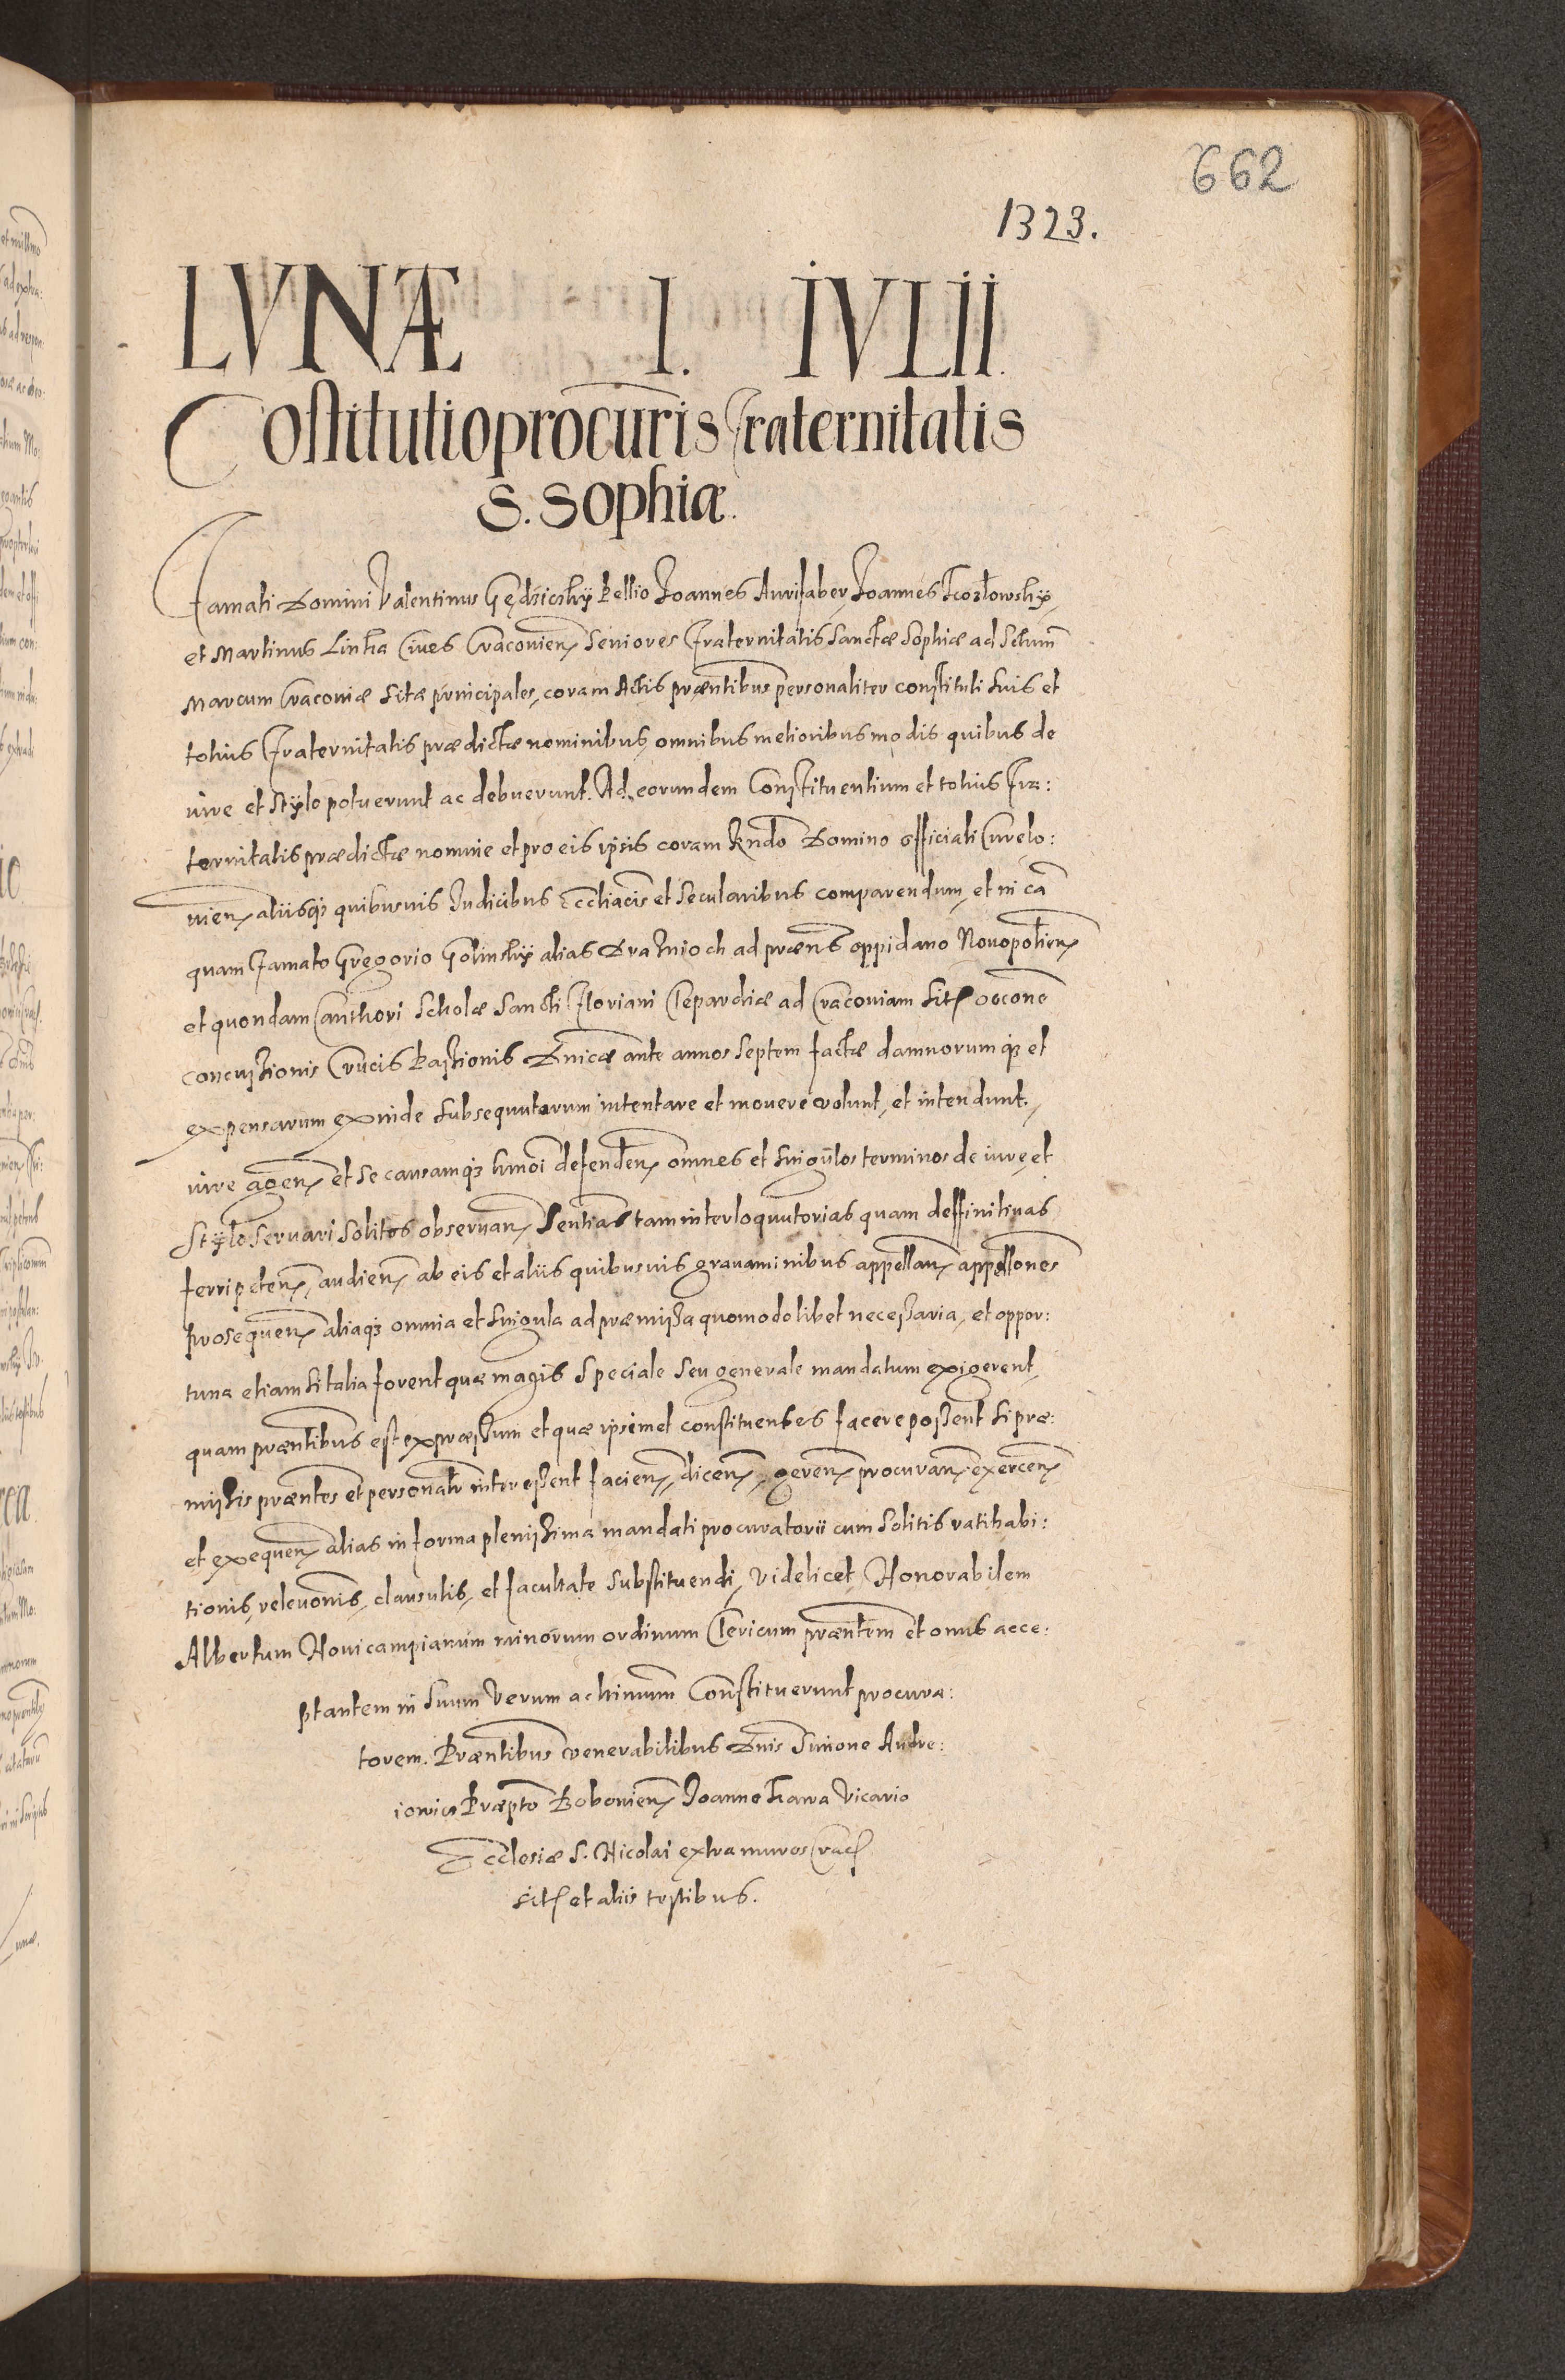 662
1323.
LVNÆ I. IVLII.
Cōstitutio procūris Fraternitatis
S. Sophiæ.
Famati Domini Valentinus Gędziczky Pellio Joannes Aurifaber, Joannes Kozlowsky,
et Martinus Linka Ciues Cracovien Seniores Fraternitatis Sanctæ Sophiæ ad Sctum
Marcum Cracoviæ sitæ principales, coram Actis præntibus personaliter constituti suis et
totius Fraternitatis prædictæ nominibus, omnibus melioribus modis quibus de
iure et stylo potuerunt ac debuerunt. Ad eorundem Constituentium et totius Fra:
ternitatis prædictæ nomine et pro eis ipsis coram Rndo Domino officiali Curelo:
uien aliisq quibusuis Judicibus Eccliacis et Secularibus comparendum, et in cā
quam Famato Gregorio Golinsky alias Drahnioch ad præns oppidano Nouopolien
et quondam Canthori Scholæ Sancti Floriani Clepardiæ ad Cracouiam sit occōne
concussionis Crucis Passionis Dnicæ ante annos septem factæ damnorumq et
expensarum exinde subsequutarum intentare et mouere volunt, et intendunt,
iure agen et se causamq hmōi defenden omnes et singulos terminos de iure, et
stylo seruari solitos obseruan Sentias tam interloquutorias quam deffinitiuas
ferri peten, audien ab eis et aliis quibusuis grauaminibus appellan appellones
prosequen aliaq omnia et singula ad præmissa quomodolibet necessaria, et oppor:
tuna etiam si talia forent quæ magis speciale seu generale mandatum exigerent,
quam præntibus est expræssum et quæ ipsimet constituentes facere possent si præ:
missis præntes et personalr interessent facien, dicen, geren procuran exercen
et exequen alias in forma plenissima mandati procuratorii cum solitis ratihabi:
tionis, releuōnis, clausulis, et facultate substituendi, Videlicet Honorabilem
Albertum Nouicampianum minorum ordinum Clericum præntem et onus acce:
ptantem in suum verum ac ltimum Constituerunt procura:
torem. Præntibus venerabilibus Dnis Simone Andre:
iouicz Præpto Bobouien Joanne Kawa Vicario
Ecclesiæ S. Nicolai extra muros Crac
sit et aliis testibus.